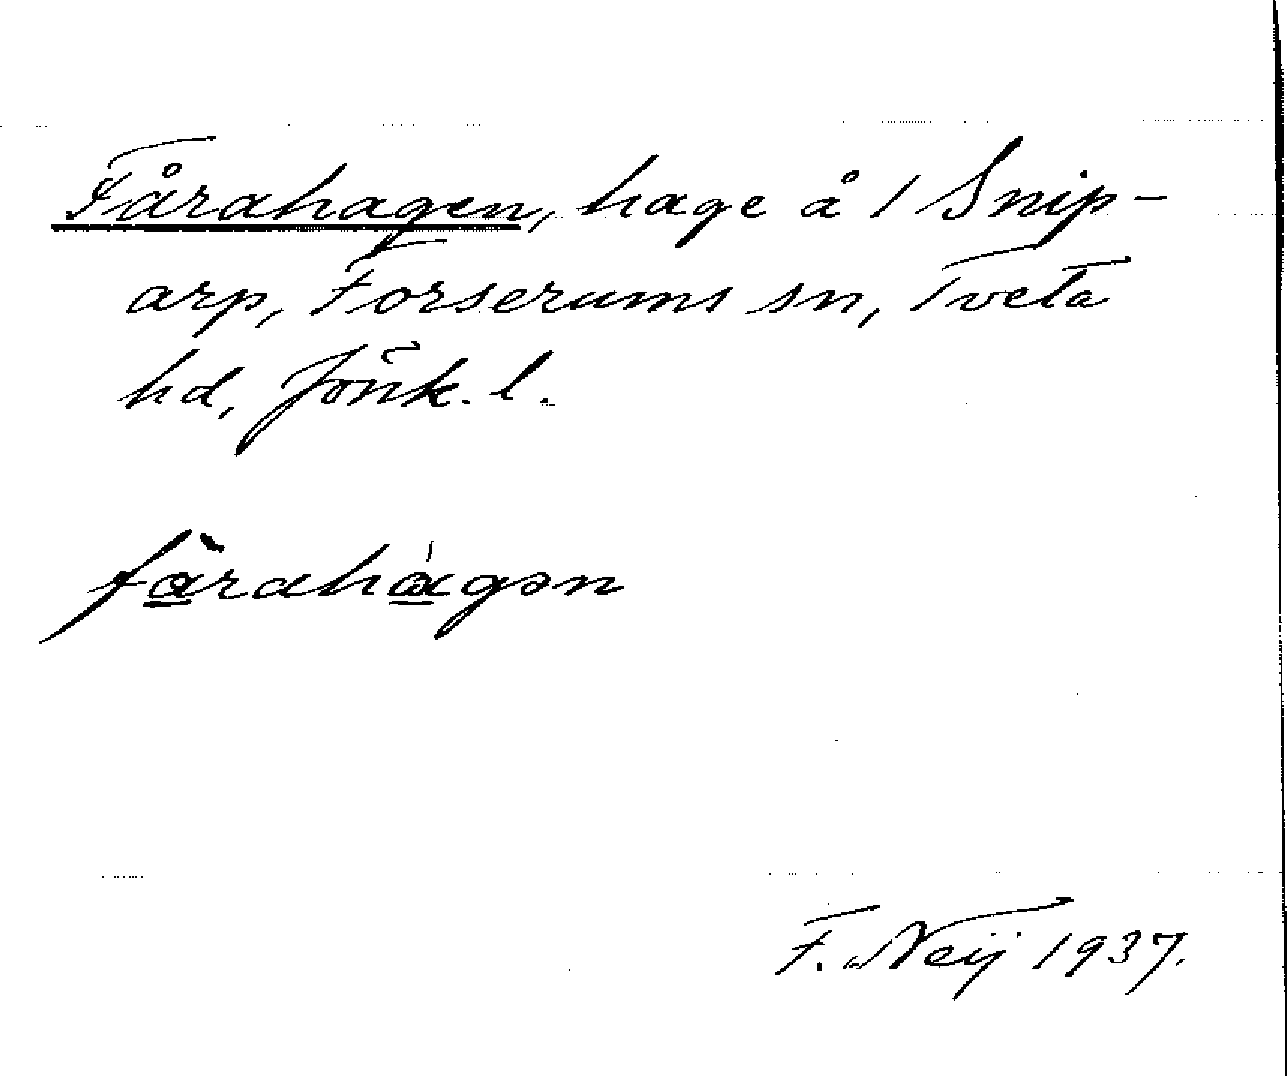 Fårahagen, hage å 1 Snip-
arp, Forserums sn, Tveta
hd, Jönk. l.
fàrahágən
F. Neij 1937.